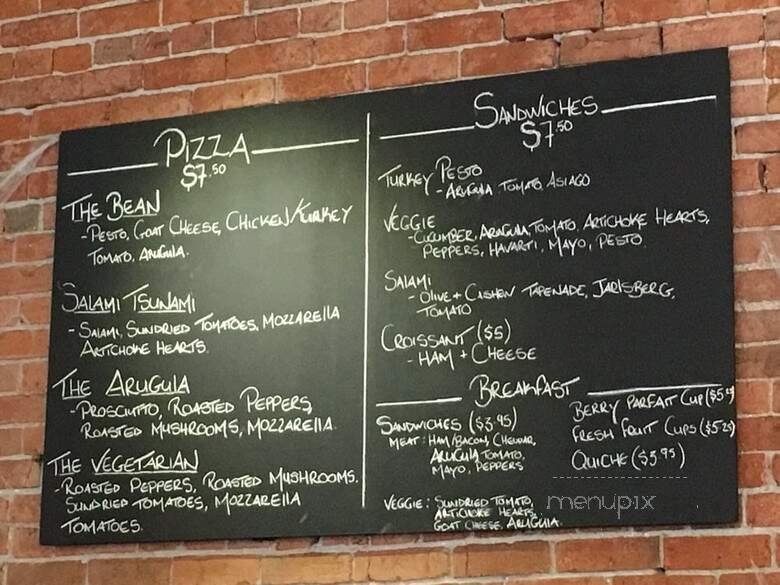 PIZZA
$7.50
THE BEAN
-PESTO, GOAT CHEESE, CHICKEN/TURKEY
TOMATO, ARUGULA.
SALAMI TSUNAMI
-SALAMI, SUNDRIED TOMATOES, MOZZARELLA
ARTICHOKE HEARTS.
THE ARUGULA
-PROSCIUTTO, ROASTED PEPPERS,
ROASTED MUSHROOMS, MOZZARELLA.
THE VEGETARIAN
-ROASTED PEPPERS, ROASTED MUSHROOMS.
SUNDRIED TOMATOES, MOZZARELLA
TOMATOES.
SANDWICHES
$7.50
TURKEY PESTO
-ARUGULA TOMATO, ASIAGO
VEGGIE
-CUCUMBER, ARUGULA, TOMATO, ARTICHOKE HEARTS,
PEPPERS, HAVARTI, MAYO, PESTO.
SALAMI
-OLIVE + CASHEW TAPENADE, JARLSBERG,
TOMATO
CROISSANT ($5)
-HAM + CHEESE
BREAKFAST
SANDWICHES ($3.95)
MEAT: HAM/BACON, CHEDDAR,
ARUGULA TOMATO,
MAYO, PEPPERS
VEGGIE: SUNDRIED TOMATO,
ARTICHOKE HEARTS,
GOAT CHEESE, ARUGULA.
BERRY PARFAIT CUP
FRESH FRUIT CUPS ($5.25)
QUICHE ($3.95)
menupix